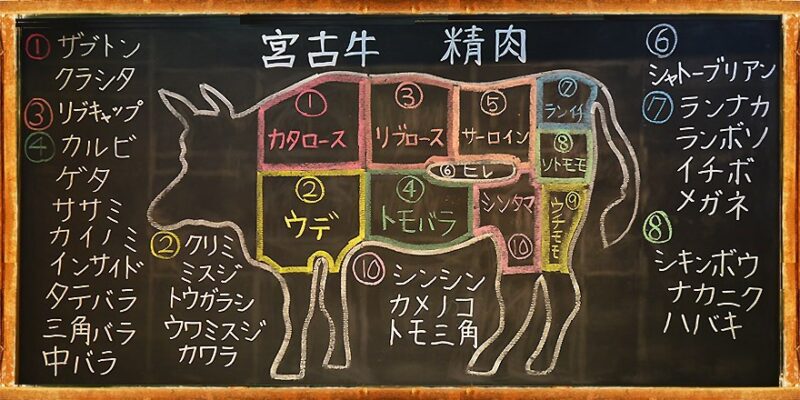 宮古牛 精肉
① ザブトン
クラシタ
③ リブキャップ
④ カルビ
ゲタ
ササミ
カイノミ
インサイド
タテバラ
三角バラ
中バラ
② クリミ
ミスジ
トウガラシ
ウワミスジ
カワラ
①
カタロース
③
リブロース
⑤
サーロイン
⑦
ランイチ
⑧
ソトモモ
⑥ ヒレ
②
ウデ
④
トモバラ
シンタマ
⑩
⑨
ウチモモ
⑩ シンシン
カメノコ
トモ三角
⑥
シャトーブリアン
⑦ ランナカ
ランボソ
イチボ
メガネ
⑧
シキンボウ
ナカニク
ハバキ